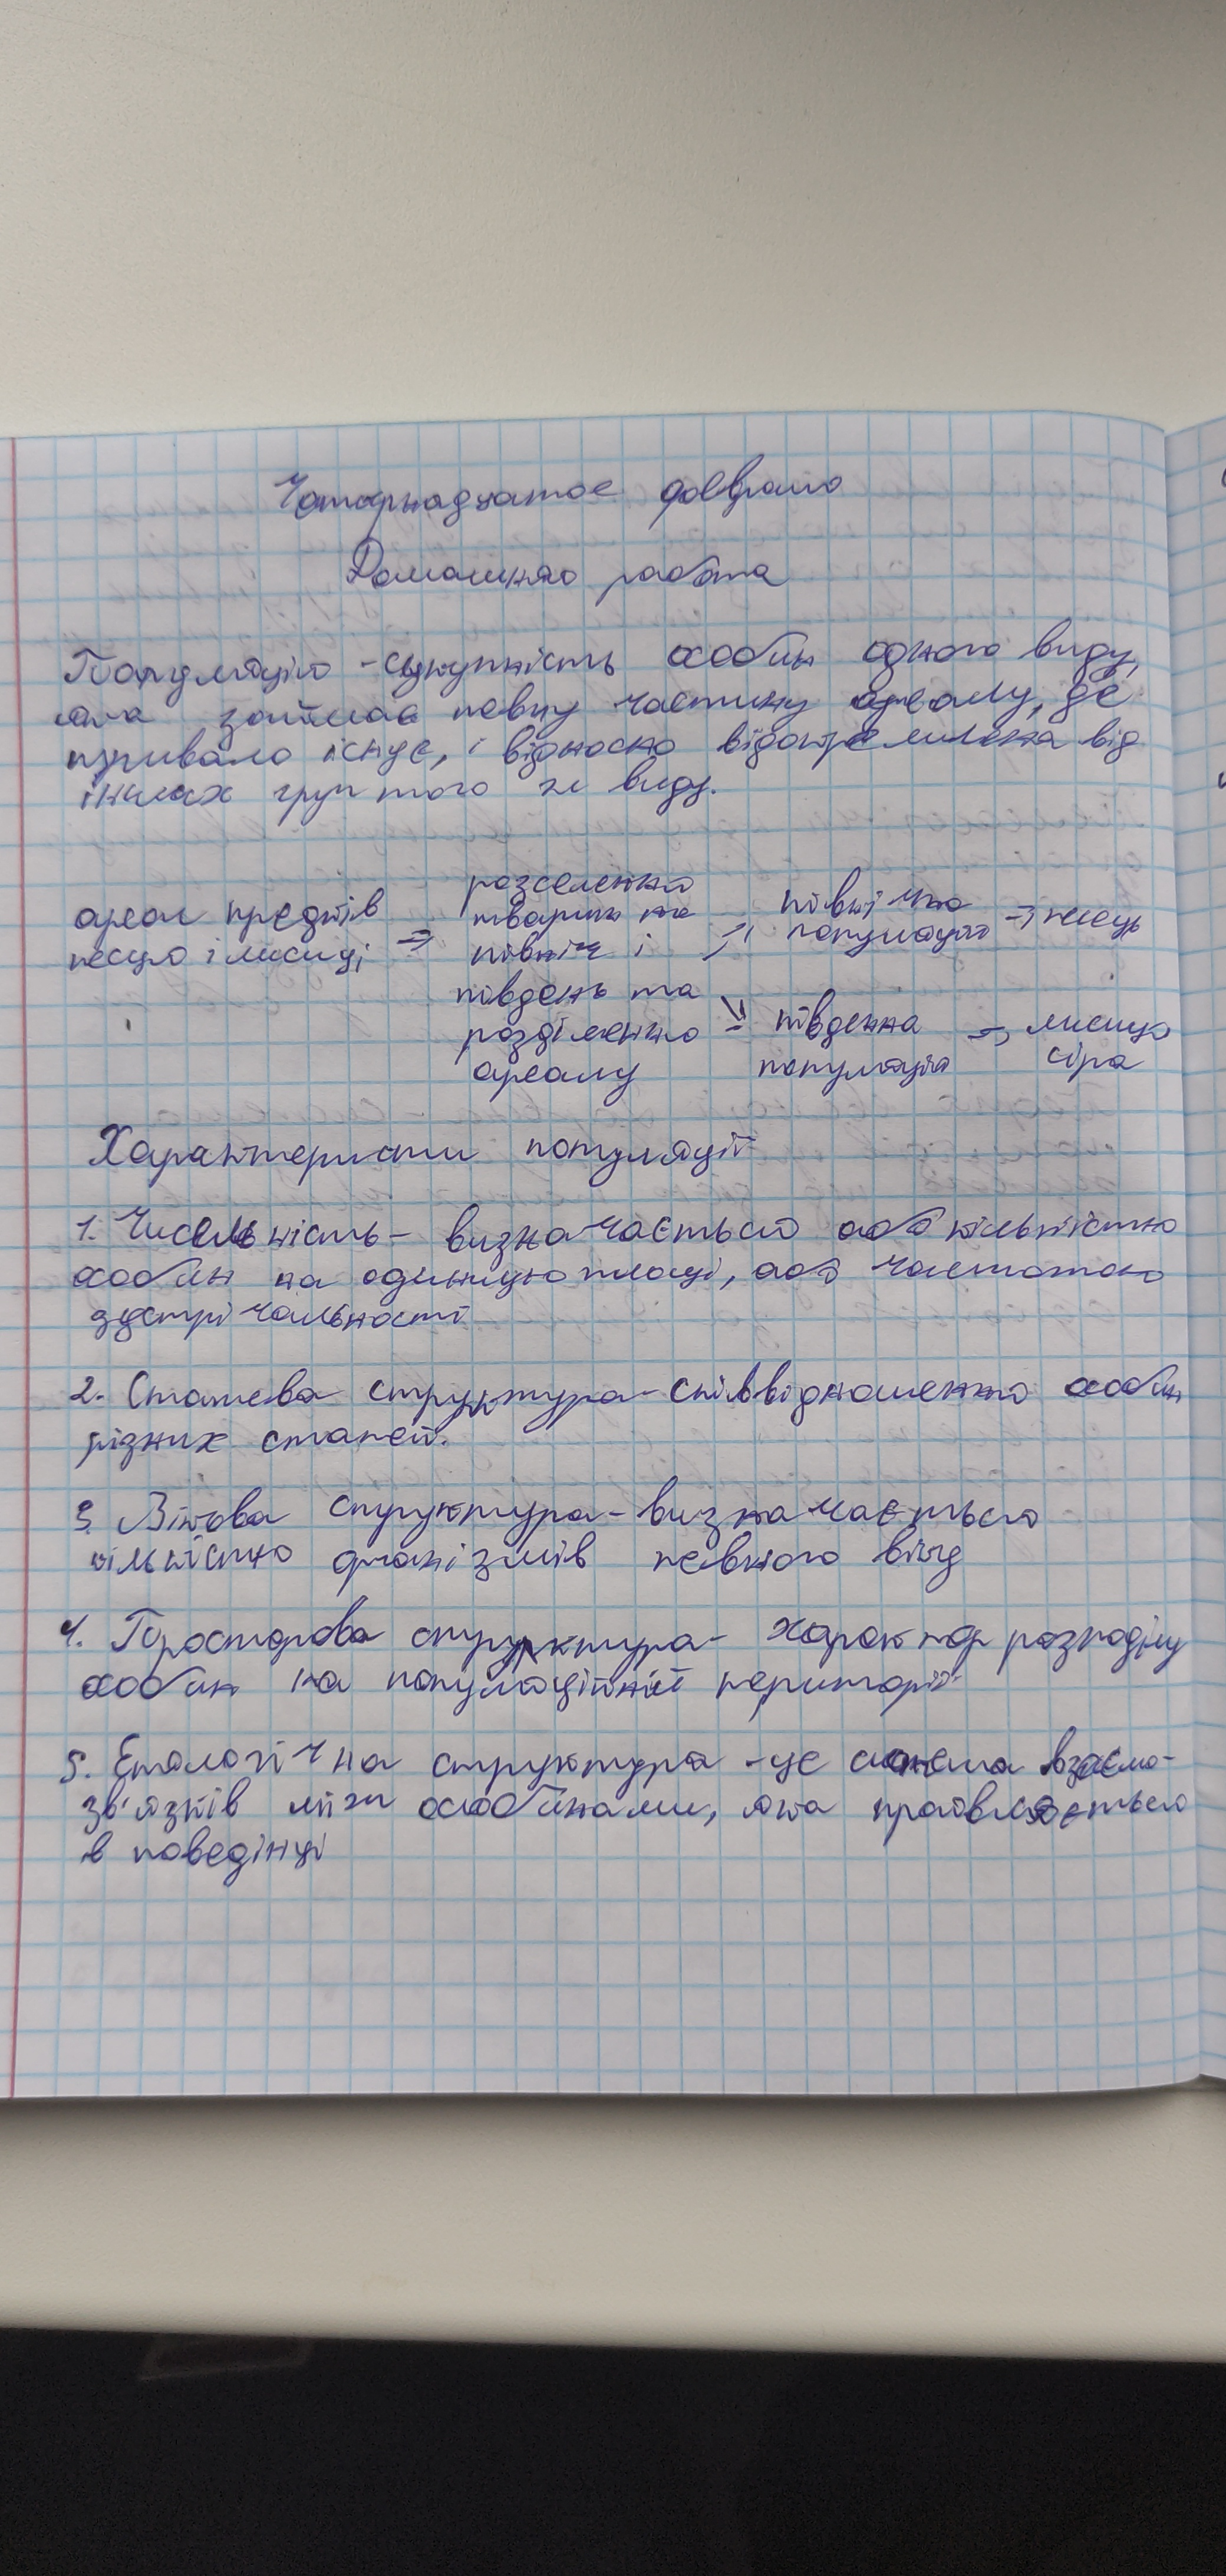 Четырнадцатое февраля
Домашняя работа
Популяція - сукупність особин одного виду,
яка займає певну частину ареалу, де
тривало існує, і відносно відокремлена від
інших груп того ж виду.
ареал предків песця і лисиці ⇒ розселення тварин на північ і південь та розділення ареалу
⇒ північна популяція ⇒ песець
⇒ південна популяція ⇒ лисиця сіра
Характеристи популяції
1. Чисельність - визначається або кількістю
особин на одиницю площі, або частотою
зустрічальності
2. Статева структура - співвідношення особин
різних статей.
3. Вікова структура - визначається
кількістю організмів певного віку
4. Просторова структура - характер розподілу
особин на популяційній території
5. Етологічна структура - це система взаємо-
зв'язків між особинами, яка проявляється
в поведінці